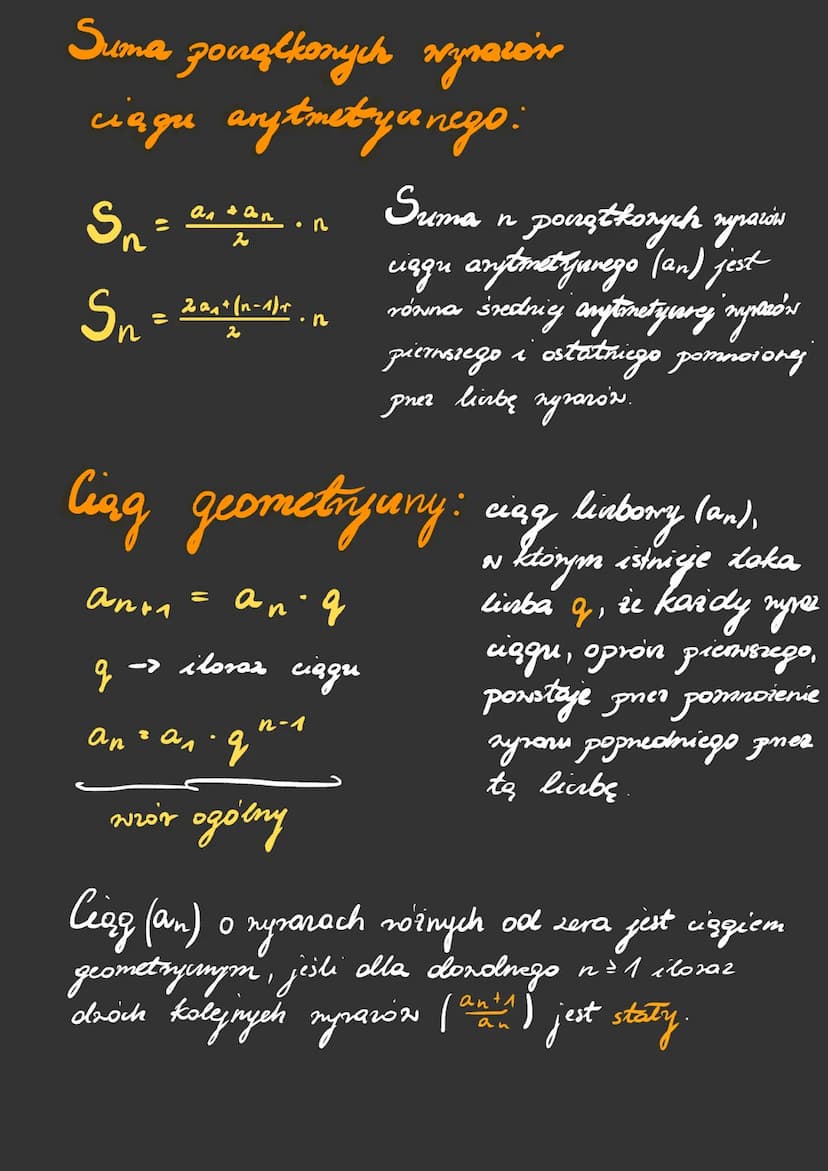 Suma początkowych wyrazów
ciągu arytmetycznego:
Sₙ = (a₁ + aₙ)/2 · n
Sₙ = (2a₁+(n-1)r)/2 · n
Suma n początkowych wyrazów
ciągu arytmetycznego (aₙ) jest
równa średniej arytmetycznej wyrazów
pierwszego i ostatniego pomnożonej
przez liczbę wyrazów.
Ciąg geometryczny:
aₙ₊₁ = aₙ · q
q -> iloraz ciągu
aₙ = a₁ · qⁿ⁻¹
wzór ogólny
ciąg liczbowy (aₙ),
w którym istnieje taka
liczba q, że każdy wyraz
ciągu, oprócz pierwszego,
powstaje przez pomnożenie
wyrazu poprzedniego przez
tą liczbę.
Ciąg (aₙ) o wyrazach różnych od zera jest ciągiem
geometrycznym, jeśli dla dowolnego n ≥ 1 iloraz
dwóch kolejnych wyrazów (aₙ₊₁/aₙ) jest stały.